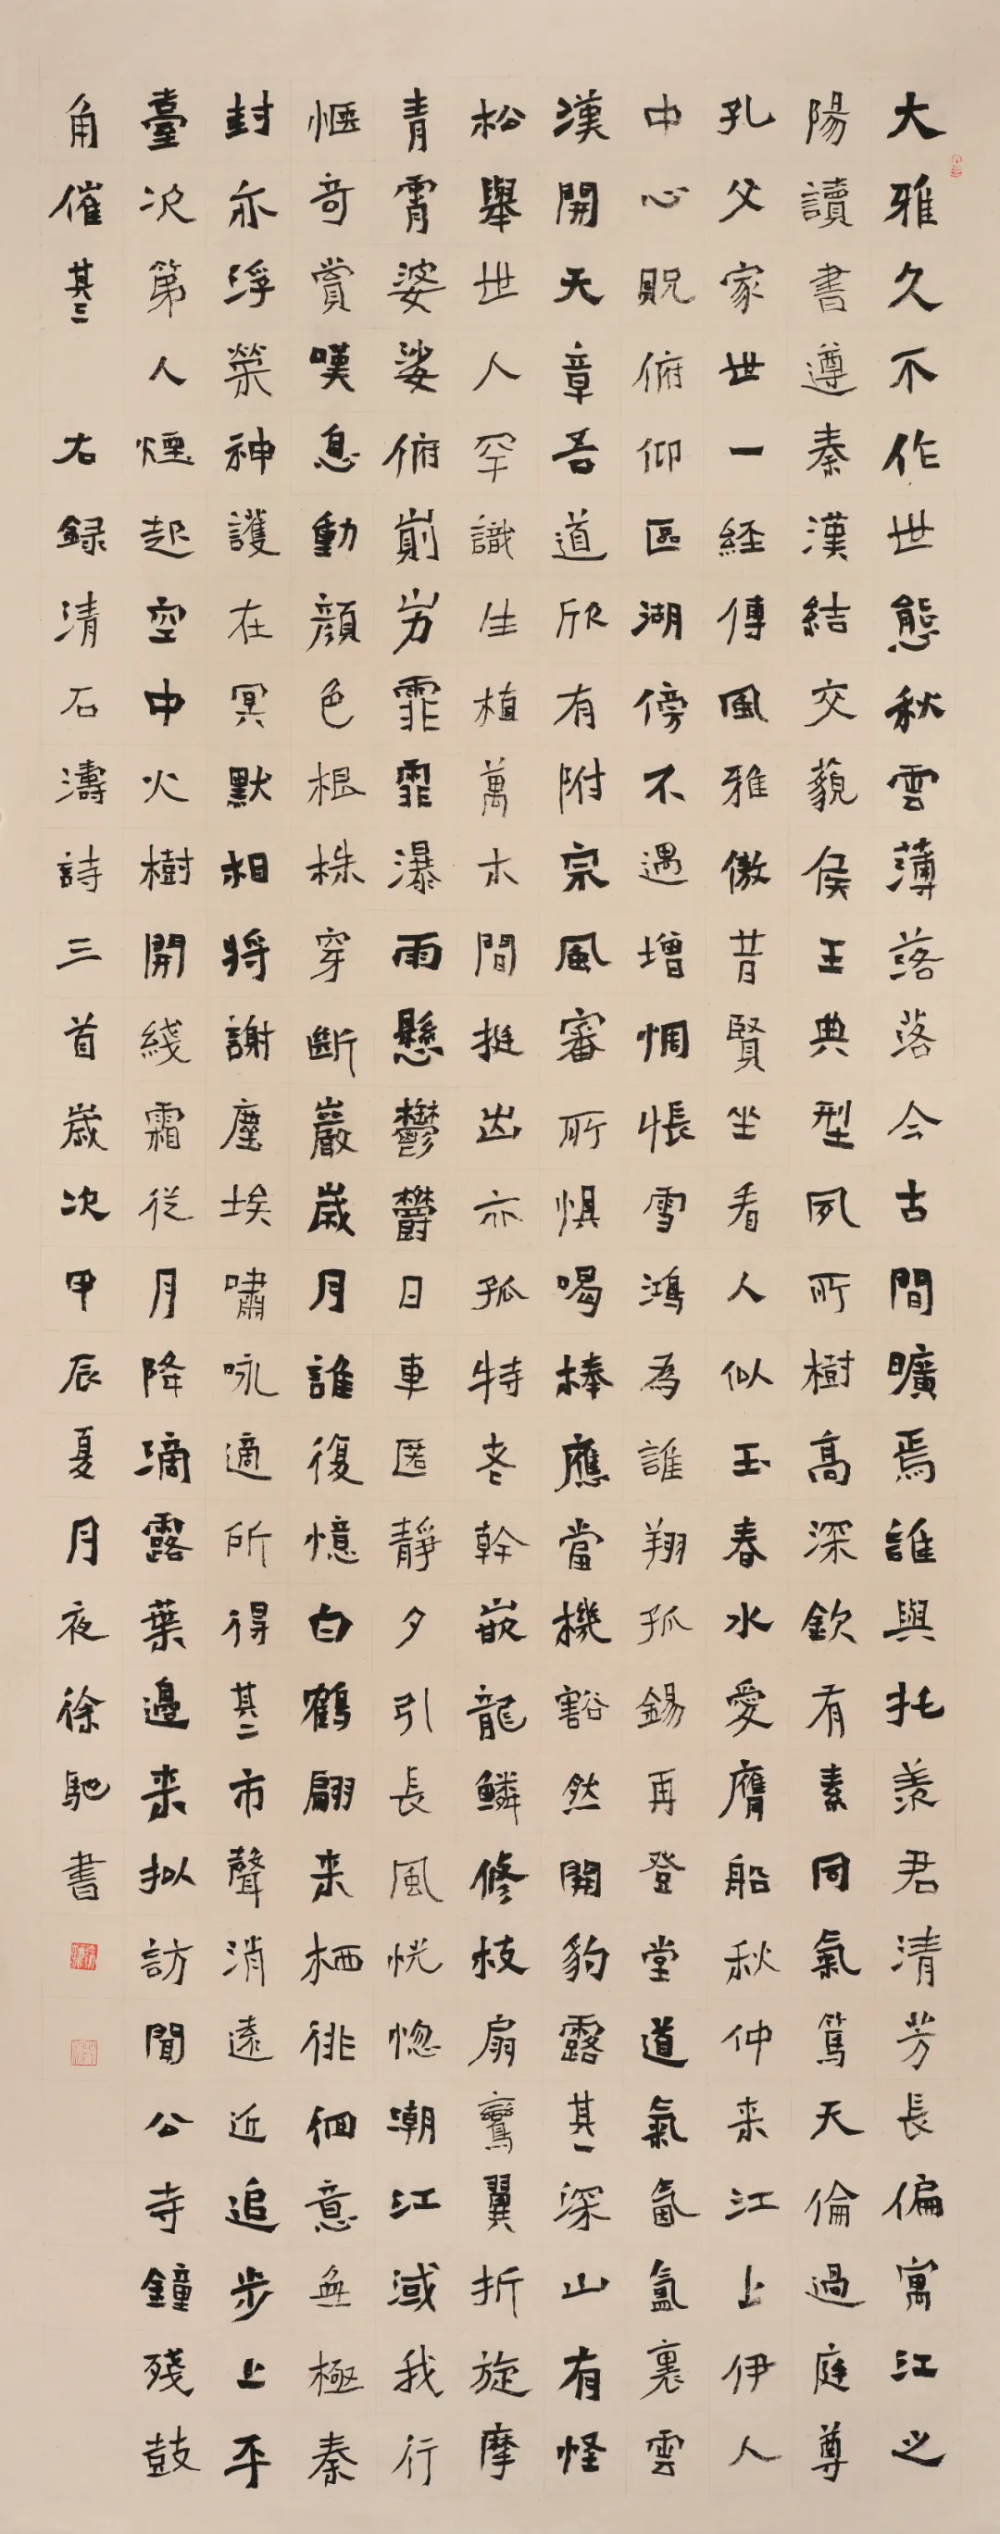 大雅久不作世態秋雲薄落落今古間曠焉誰與托羨君清芳長偏寓江之
陽讀書遵秦漢結交藐侯王典型夙所樹高深欽有素同氣篤天倫過庭尊
孔父家世一經傳風雅傲昔賢坐看人似玉春水愛膺船秋仲来江上伊人
中心貺俯仰區湖傍不遇增惆悵雪鴻為誰翔孤錫再登堂道氣氤氳裏雲
漢開天章吾道欣有附宗風審所惧喝棒應當機豁然開豹露其一深山有怪
松舉世人罕識生植萬木間挺出亦孤特老幹嵌龍鱗修枝扇鸞翼折旋摩
青霄婆娑俯崱屴霏霏瀑雨懸鬱鬱日車匿靜夕引長風恍惚潮江域我行
愜奇賞嘆息動顏色根株穿斷巖歲月誰復憶白鶴翩来栖徘徊意無極秦
封亦浮榮神護在冥默相將謝塵埃嘯咏適所得其二市聲消遠近追步上平
臺次第人煙起空中火樹開綫霜從月降滴露葉邊来拟訪聞公寺鐘殘鼓
角催其三 右録清石濤詩三首歲次甲辰夏月夜徐馳書